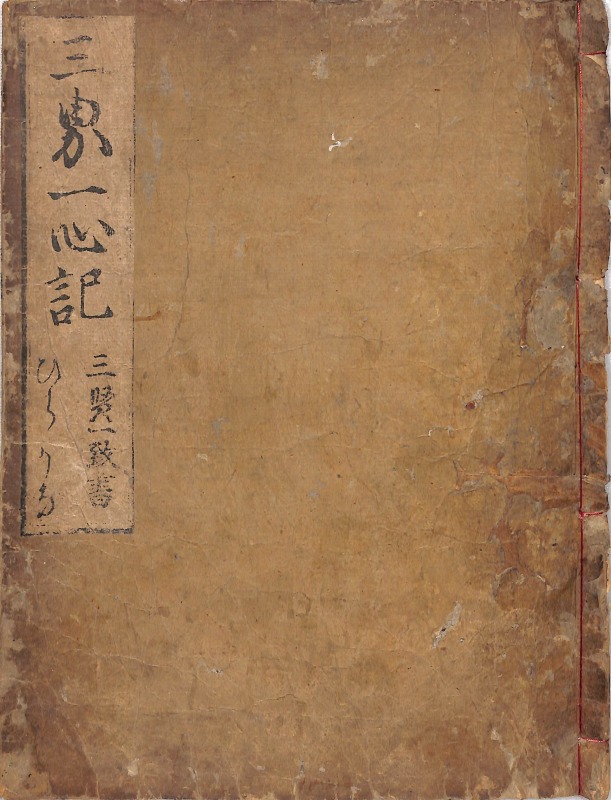 三界一心記
三賢一致書
ひらかな